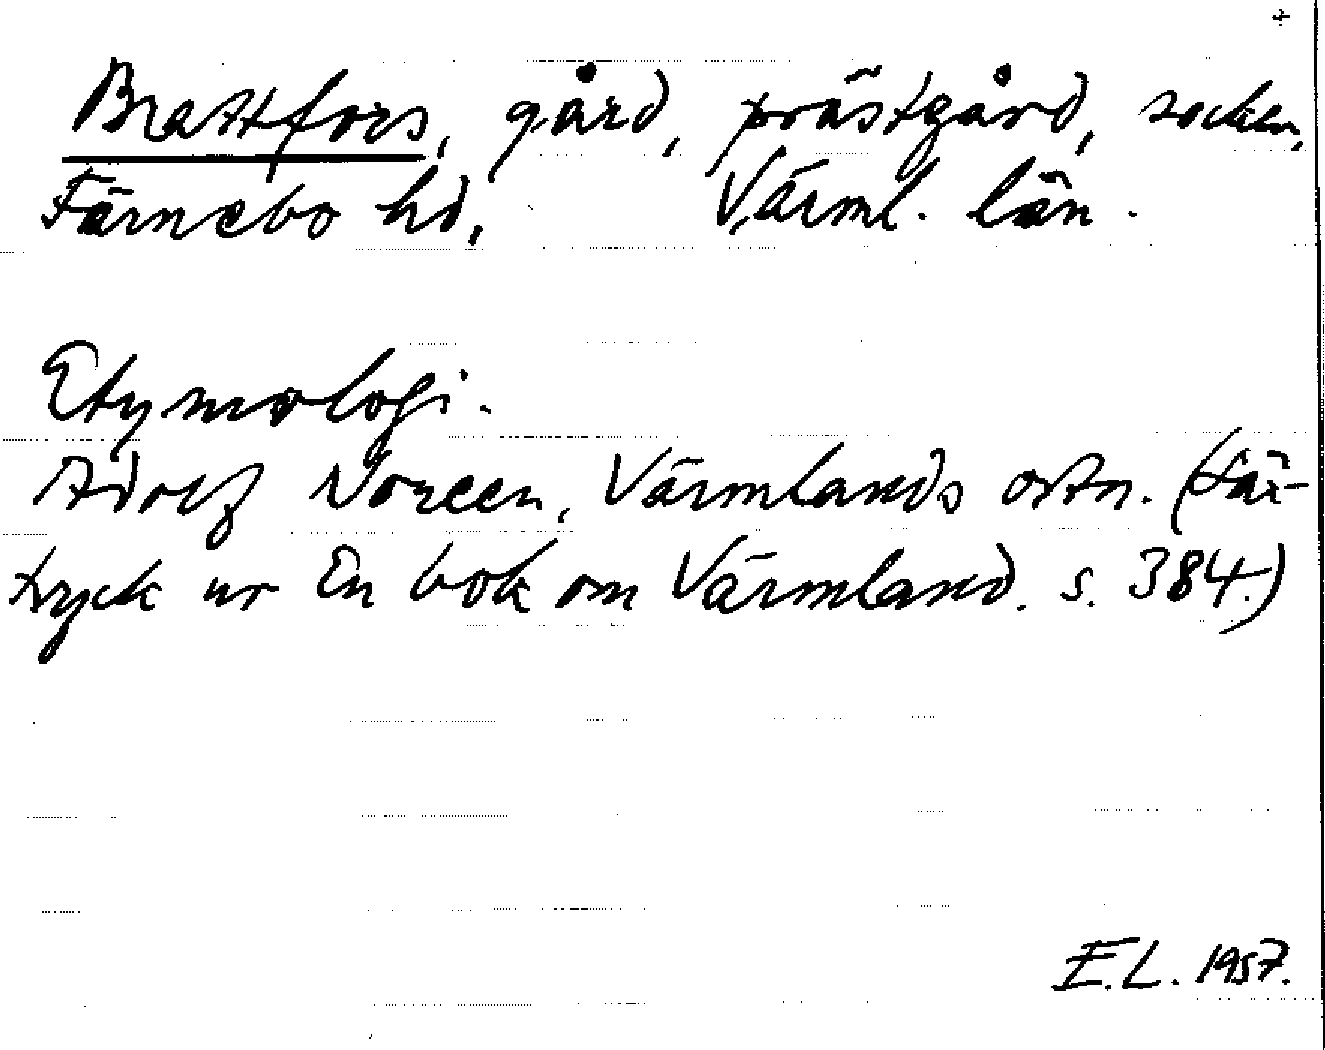 Brattfors, gård, prästgård, socken,
Färnebo hd, Värml. län.
Etymologi.
Adolf Noreen, Värmlands ortn. (Sär-
tryck ur En bok om Värmland. s. 384.)
E.L. 1957.